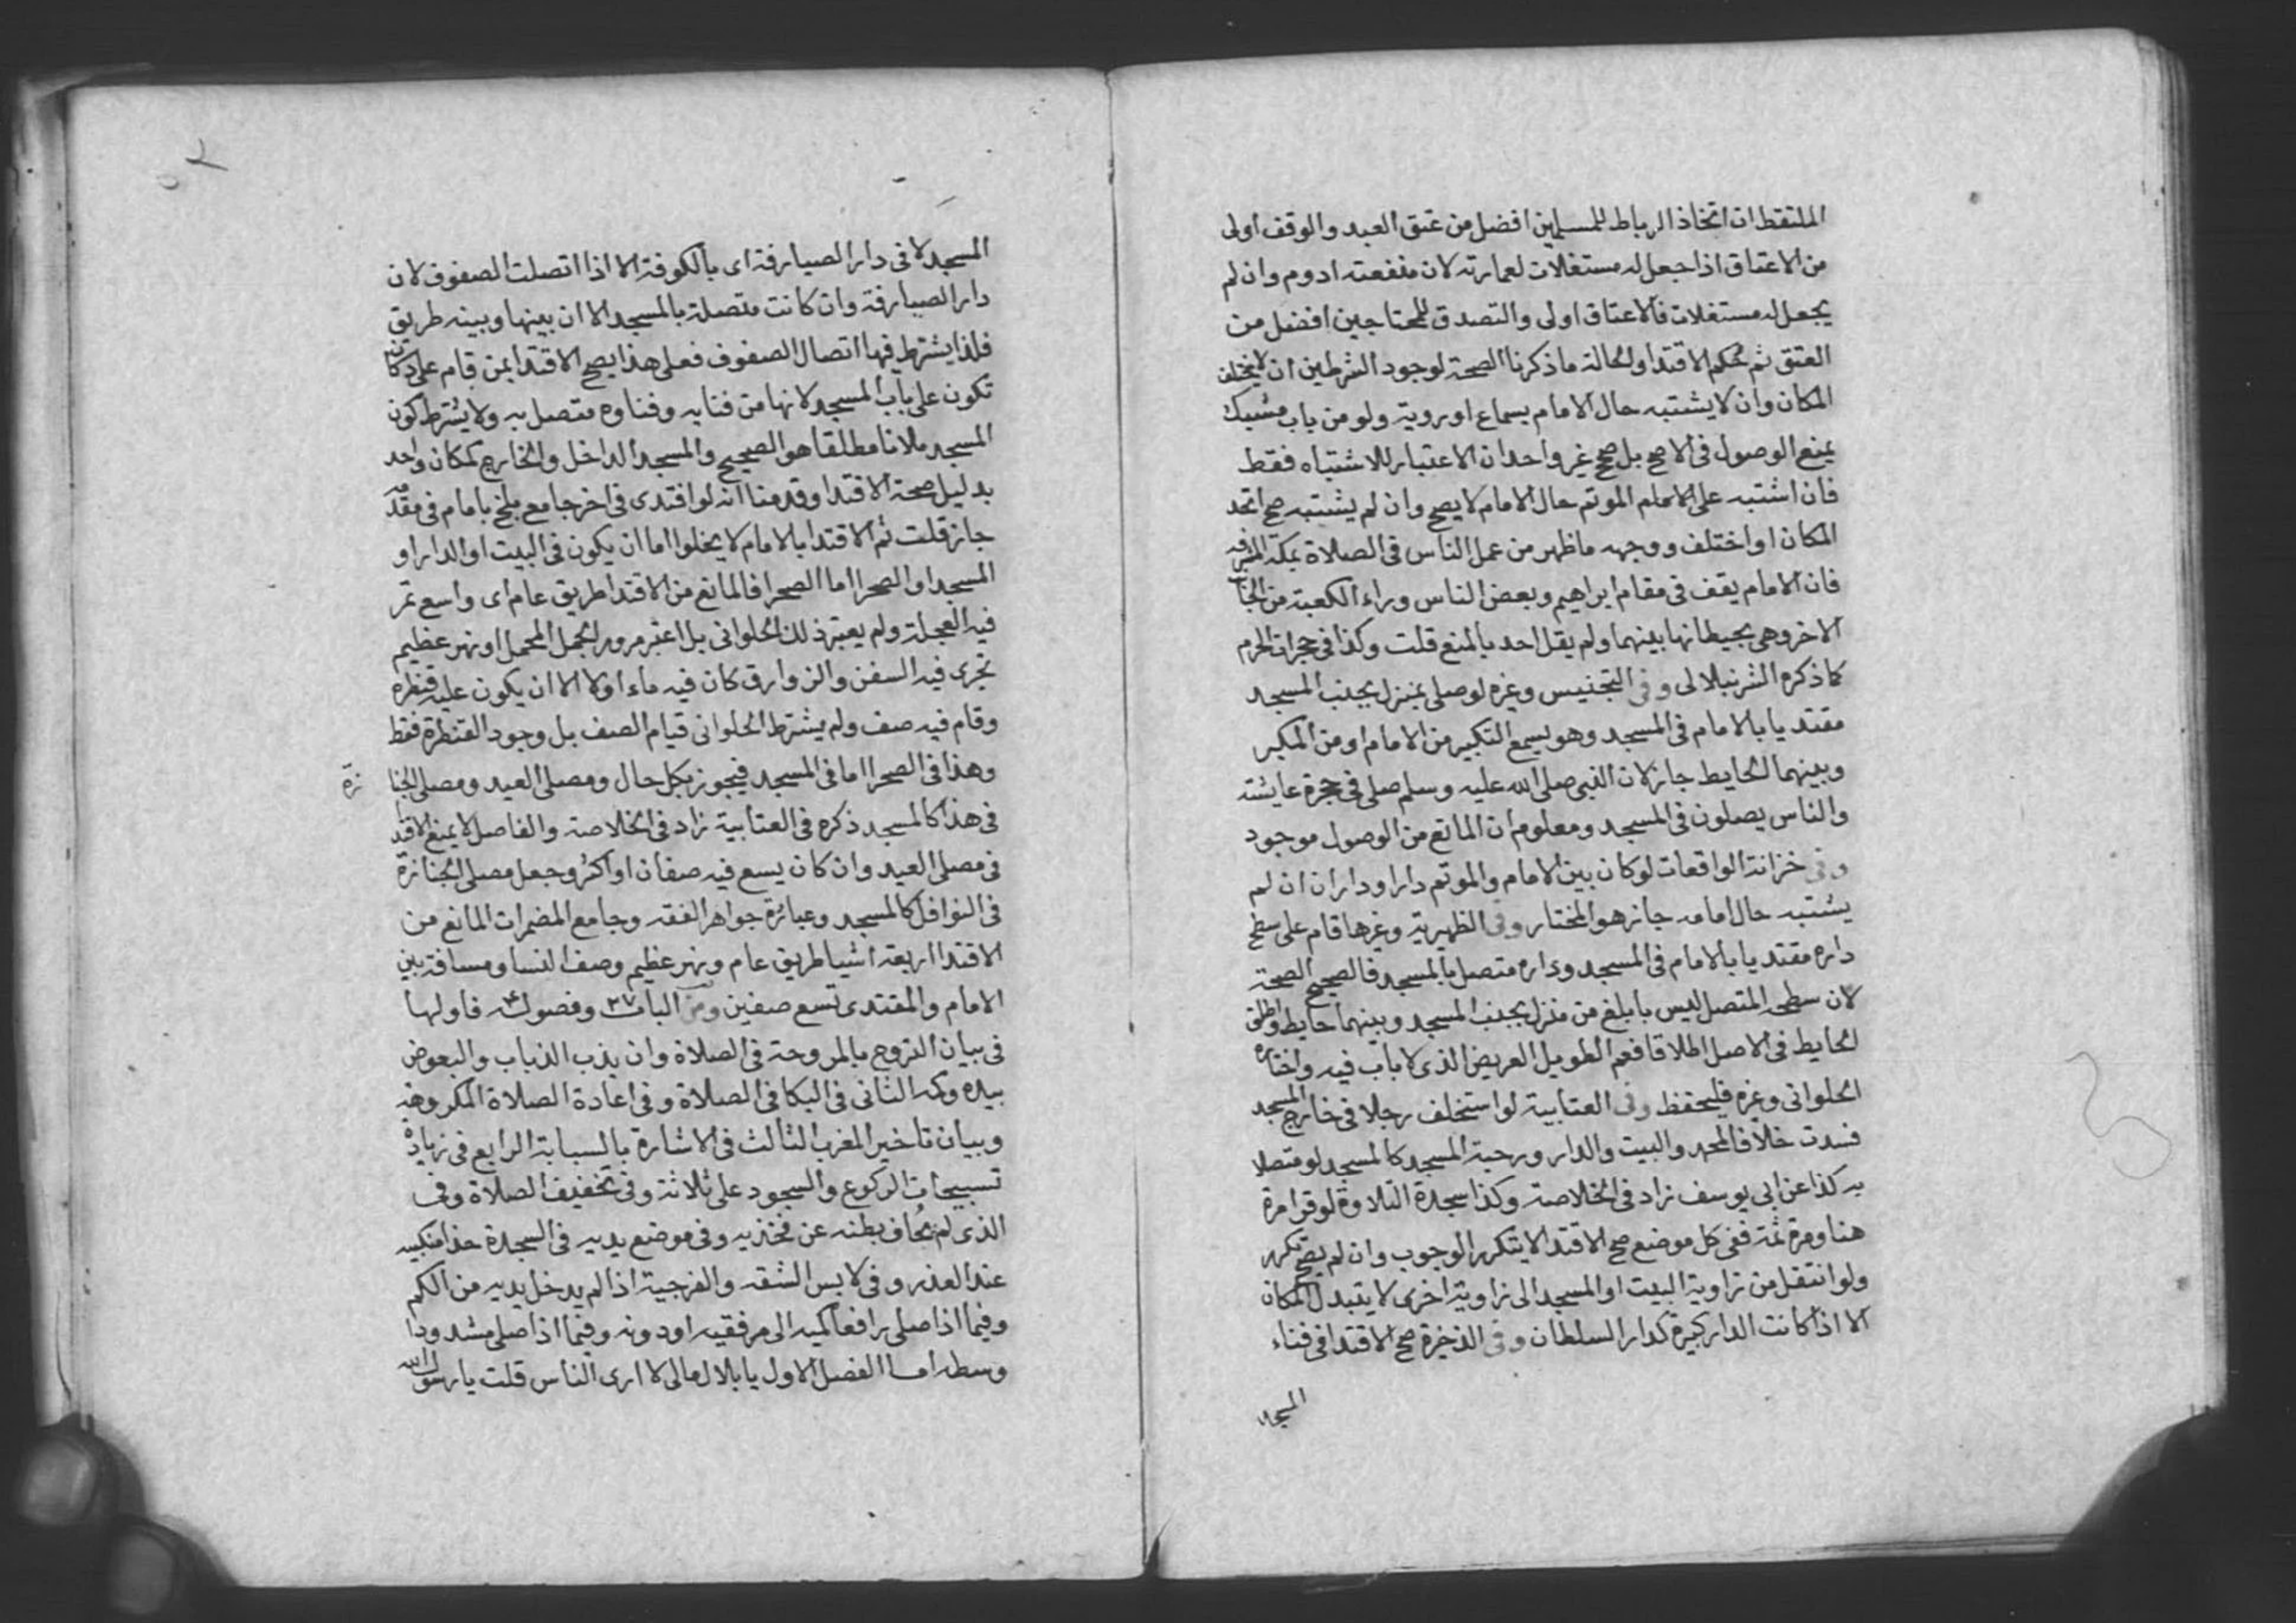 الملتقط ان اتخاذ الرباط للمسلمين افضل من عتق العبد والوقف اولى
من الاعتاق اذا جعل له مستغلات لعمارته لان منفعته ادوم وان لم
يجعل له مستغلات فالاعتاق اولى والتصدق للمحتاجين افضل من
العتق ثم حكم الاقتدا ولحالة ما ذكرنا الصحة لوجود الشرطين ان لا يختلف
المكان وان لا يشتبه حال الامام بسماع او روية ولو من باب مشبك
يمنع الوصول فى الاصح بل صحح غير واحد ان الاعتبار للاشتباه فقط
فان اشتبه على الموتم حال الامام لا يصح وان لم يشتبه صح اتحد
المكان او اختلف ووجهه ما ظهر من عمل الناس فى الصلاة بمكة المشرفه
فان الامام يقف فى مقام ابراهيم وبعض الناس وراء الكعبة من الجانب
الاخر وهى بحيطانها بينهما ولم يقل احد بالمنع قلت وكذا فى حجرات الحرم
كما ذكره الشرنبلالى وفى التجنيس وغيره لو صلى بمنزل بجنب المسجد
مقتديا بالامام فى المسجد وهو يسمع التكبير من الامام او من المكبر
وبينهما الحايط جاز لان النبى صلى الله عليه وسلم صلى فى حجرة عايشة
والناس يصلون فى المسجد ومعلوم ان المانع من الوصول موجود
وفى خزانة الواقعات لو كان بين الامام والموتم دار او داران ان لم
يشتبه حال امامه جاز هو المختار وفى الظهيرية وغيرها قام على سطح
داره مقتديا بالامام فى المسجد وداره متصل بالمسجد فالصحيح الصحة
لان سطحه المتصل ليس بابلغ من منزل بجنب المسجد وبينهما حايط واطلق
الحايط فى الاصل اطلاقا فعم الطويل العريض الذى لا باب فيه واختاره
الحلوانى وغيره فليحفظ وفى العتابية لو استخلف رجلا فى خارج المسجد
فسدت خلافا لمحمد والبيت والدار ورحبة المسجد كالمسجد لو متصلا
به كذا عن ابى يوسف زاد فى الخلاصة وكذا سجدة التلاوة لو قرا مرة
هنا ومرة ثمة ففى كل موضع صح الاقتدا لا يتكرر الوجوب وان لم يصح تكرر
ولو انتقل من زاوية البيت او المسجد الى زاوية اخرى لا يتبدل المكان
الا اذا كانت الدار كبيرة كدار السلطان وفى الذخيرة صح الاقتدا فى فناء
المسجد
المسجد لا فى دار الصيارفة اى بالكوفة الا اذا اتصلت الصفوف لان
دار الصيارفة وان كانت متصلة بالمسجد الا ان بينها وبينه طريق
فلذا يشترط فيها اتصال الصفوف فعلى هذا يصح الاقتدا بمن قام على دكان
تكون على باب المسجد لانها من فنايه وفناوه متصل به ولا يشترط كون
المسجد ملانا مطلقا هو الصحيح والمسجد الداخل والخارج كمكان واحد
بدليل صحة الاقتدا وقدمنا انه لو اقتدى فى اخر جامع بلخ بامام فى مقدمه
جاز قلت ثم الاقتدا بالامام لا يخلو اما ان يكون فى البيت او الدار او
المسجد او الصحرا اما الصحرا فالمانع من الاقتدا طريق عام اى واسع تمر
فيه العجلة ولم يعتبر ذلك الحلوانى بل اعتبر مرور الجمل المحمل او نهر عظيم
تجرى فيه السفن والزوارق كان فيه ماء او لا الا ان يكون عليه قنطره
وقام فيه صف ولم يشترط الحلوانى قيام الصف بل وجود القنطرة فقط
وهذا فى الصحرا اما فى المسجد فيجوز بكل حال ومصلى العيد ومصلى الجنازة
فى هذا كالمسجد ذكره فى العتابية زاد فى الخلاصة والفاصل لا يمنع الاقتدا
فى مصلى العيد وان كان يسع فيه صفان او اكثر وجعل مصلى الجنازة
فى النوافل كالمسجد وعبارة جواهر الفقه وجامع المضمرات المانع من
الاقتدا اربعة اشيا طريق عام ونهر عظيم وصف النسا ومسافة بين
الامام والمقتدى تسع صفين ومن الباب ٣٧ وفصوله ٤ فاولها
فى بيان التروح بالمروحة فى الصلاة وان يذب الذباب والبعوض
بيده وكمه الثانى فى البكا فى الصلاة وفى اعادة الصلاة المكروهة
وبيان تاخير المغرب الثالث فى الاشارة بالسبابة الرابع فى زيادة
تسبيحات الركوع والسجود على ثلاثة وفى تخفيف الصلاة وفى
الذى لم يجاف بطنه عن فخذيه وفى موضع يديه فى السجدة حذا منكبيه
عند العذر وفى لابس الشقه والفرجية اذا لم يدخل يديه من الكم
وفيما اذا صلى رافعا كميه الى مرفقيه او دونه وفيما اذا صلى مشدودا
وسطه اما الفصل الاول يا بلال مالى لا ارى الناس قلت يا رسول الله